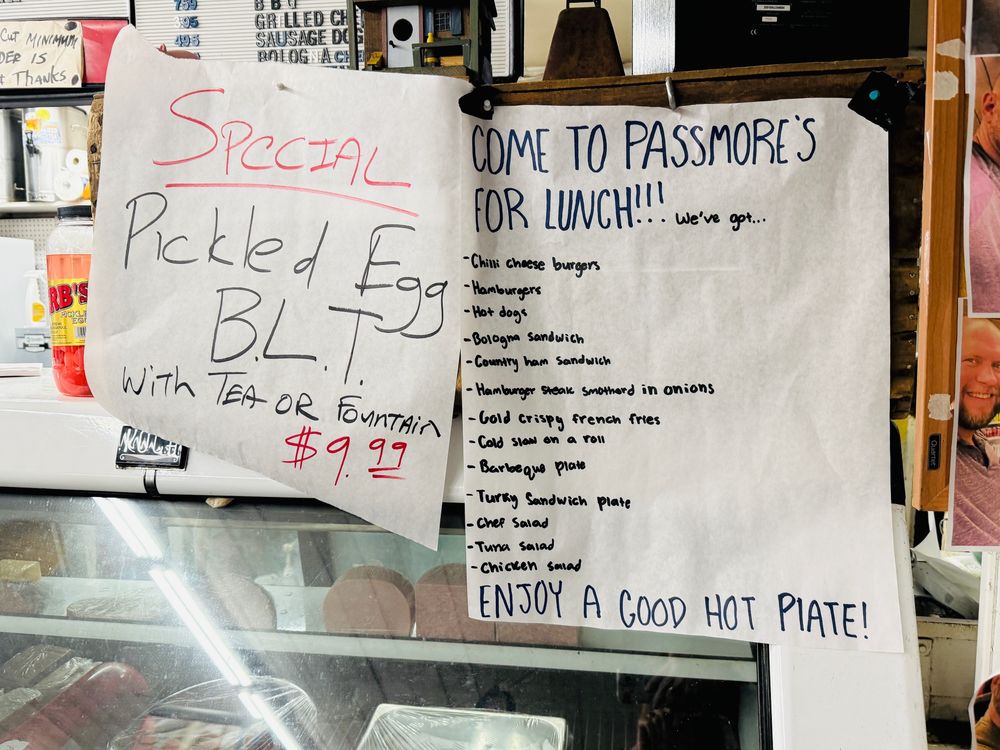 759
495
495
B B T
GRILLED CH
SAUSAGE DO
BOLOGNA CHE
CUT MINIMUM
DER IS
THANKS.
SPECIAL
Pickled Egg
B.L.T.
WITH TEA OR FOUNTAIN
$9.99
RB'S
PICKLE
EGG
COME TO PASSMORE'S
FOR LUNCH!!! We've got...
- Chilli cheese burgers
- Hamburgers
- Hot dogs
- Bologna sandwich
- Country ham sandwich
- Hamburger steak smotherd in onions
- Gold crispy french fries
- Cold slaw on a roll
- Barbeque plate
- Turky Sandwich plate
- Chef salad
- Tuna salad
- Chicken salad
ENJOY A GOOD HOT PLATE!
Quartet